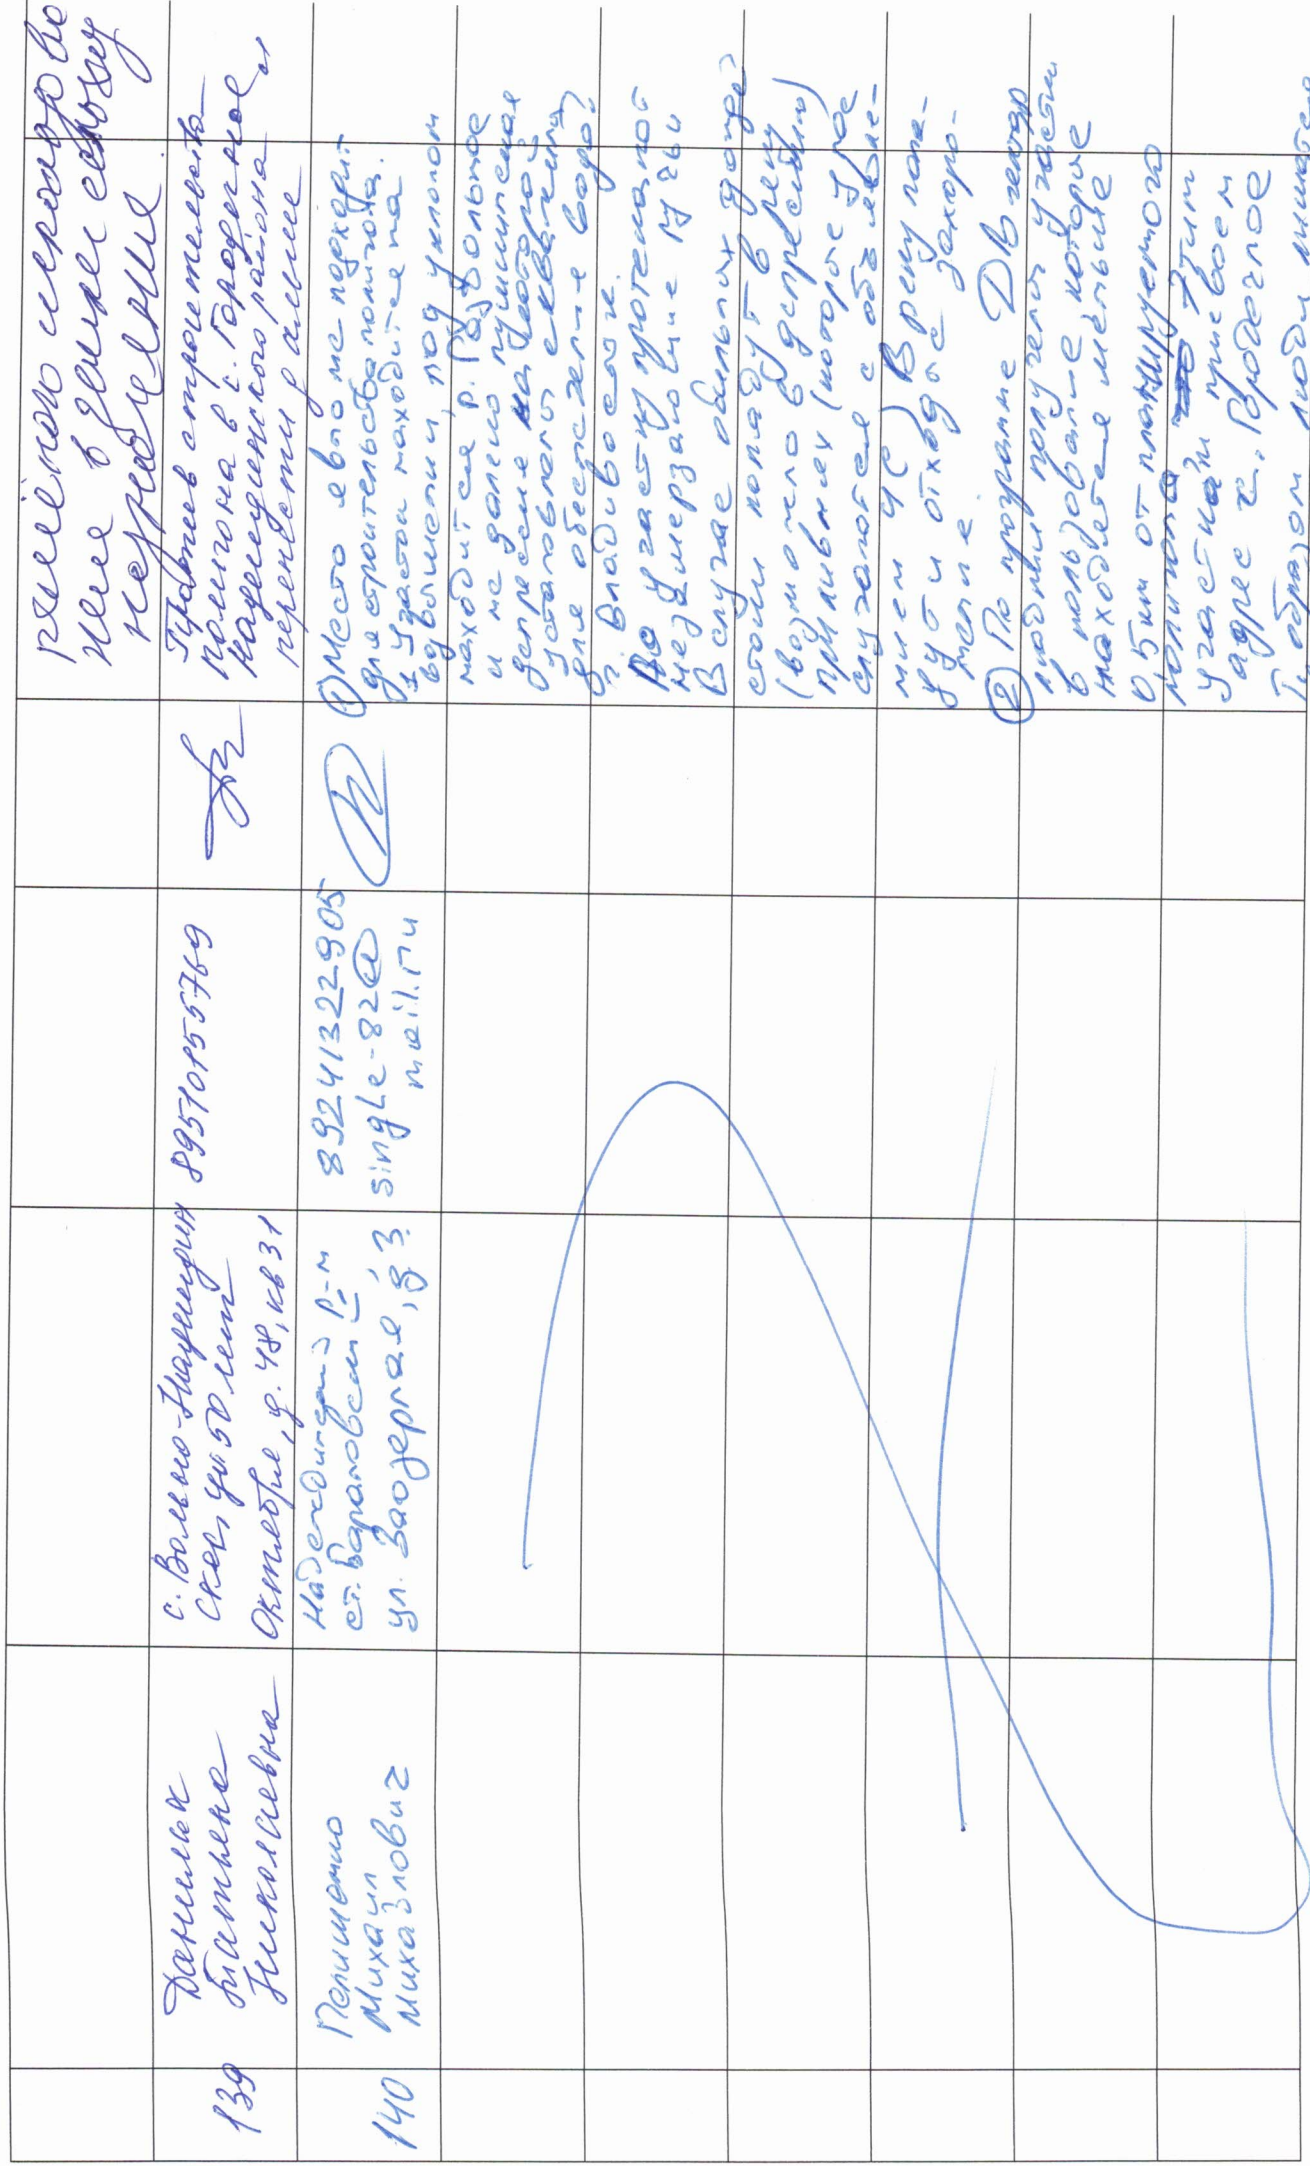 нее в земле сыпому
139
Данилюк
Татьяна
Николаевна
с. Вольно-Надеждин
ское, ул 50 лет
Октября, д. 48, кв 31
89510155769
Против строительства
полигона в с. Городечное,
Надеждинского района
перенести далее
140
Михаил
Михайлович
Надеждинский р-н
ст. Барановский
ул. Заозерная, д 3.
89241322905
single-82@
mail.ru
① Место явно не подходит
для строительства полигона.
Участок находится на
под уклоном
находится р. Раздольное
и не далеко пушкинская
депрессия на которой
установлены скважины
для обеспечения водой
г. Владивосток.
По участку протекают
незамерзающие ручьи
В случае обильных дождей
стоки попадут в реку
(возможно в депрессию)
при ливнях (которые у нас
случаются с объявле-
нием ЧС) в реку попа-
дут и отходы захоро-
нение.
② По программе ДВ гектар
люди получали участки
в пользование которые
находятся меньше
0,5 км от планируемого
полигона. Этим
участкам присвоен
адрес с. Городечное
Т. образом люди лишатся